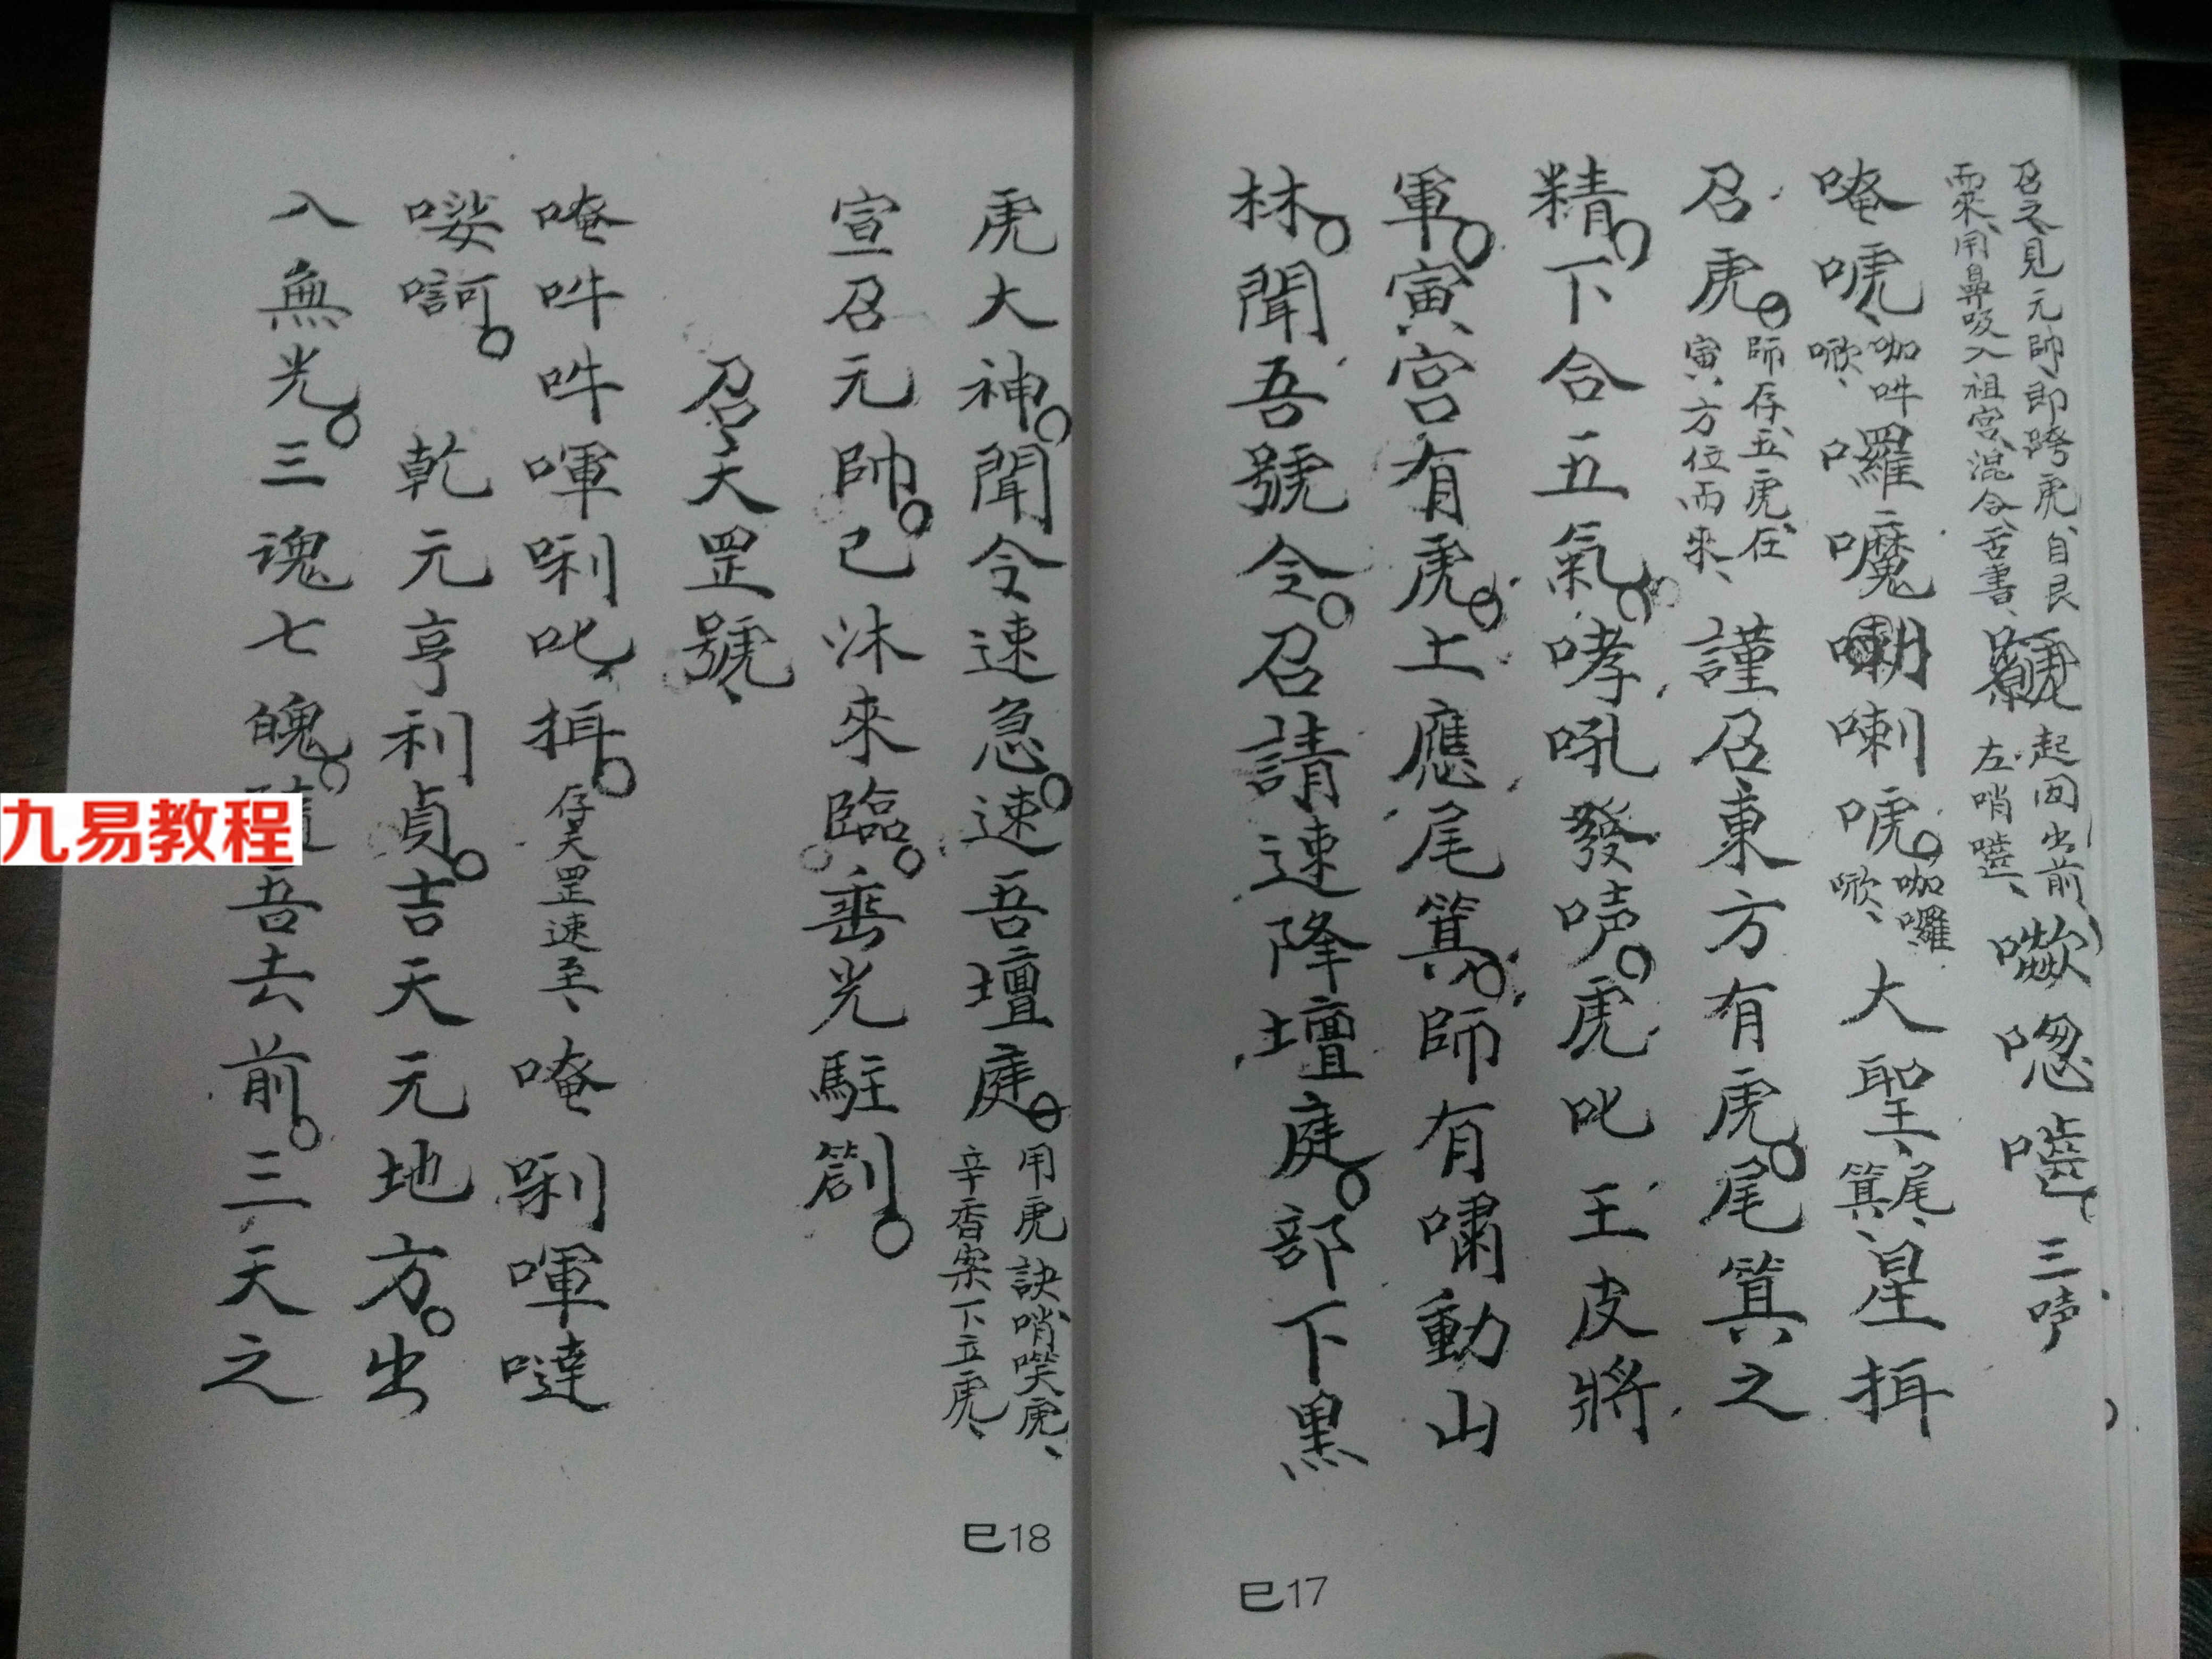 召之見元帥、即跨虎、自艮
粟、用鼻吸入祖宮、混合舌書、
起回出前
左哨噎、
三吽
唵唬 咖吽 噷、囉嚩喇唬。咖囉 噷、大聖、尾、箕、星揖
召虎。師存五虎在 寅方位而來、謹召東方有虎。尾箕之
精。下合五氣。哮吼發唠。虎叱王皮將
軍。寅宮有虎。上應尾箕。師有嘯動山
林。聞吾號令。召請速降壇庭。部下黑
巳17
虎大神。聞令速急。速吾壇庭。用虎訣哨噗虎、 辛香案下立虎、
宣召元帥。已沐來臨。垂光駐劄。
召天罡號、
唵吽吽㖮唎叱揖。存天罡速至、唵唎㖮噠
㗓訶。 乾元亨利貞。吉天元地方。出
入無光。三魂七魄。隨吾去前。三天之
巳18
九易教程